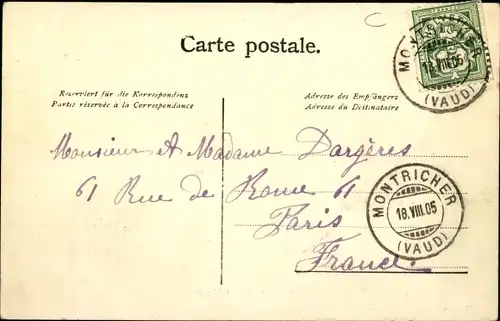 Carte postale.
Reserviert für die Korrespondenz
Partie réservée à la Correspondance
Adresse des Empfängers
Adresse du Destinataire
MONTRICHER
18.VIII.05
(VAUD)
Monsieur et Madame Dargères
61 Rue de Rome 61
Paris
France.
MONTRICHER
18.VIII.05
(VAUD)